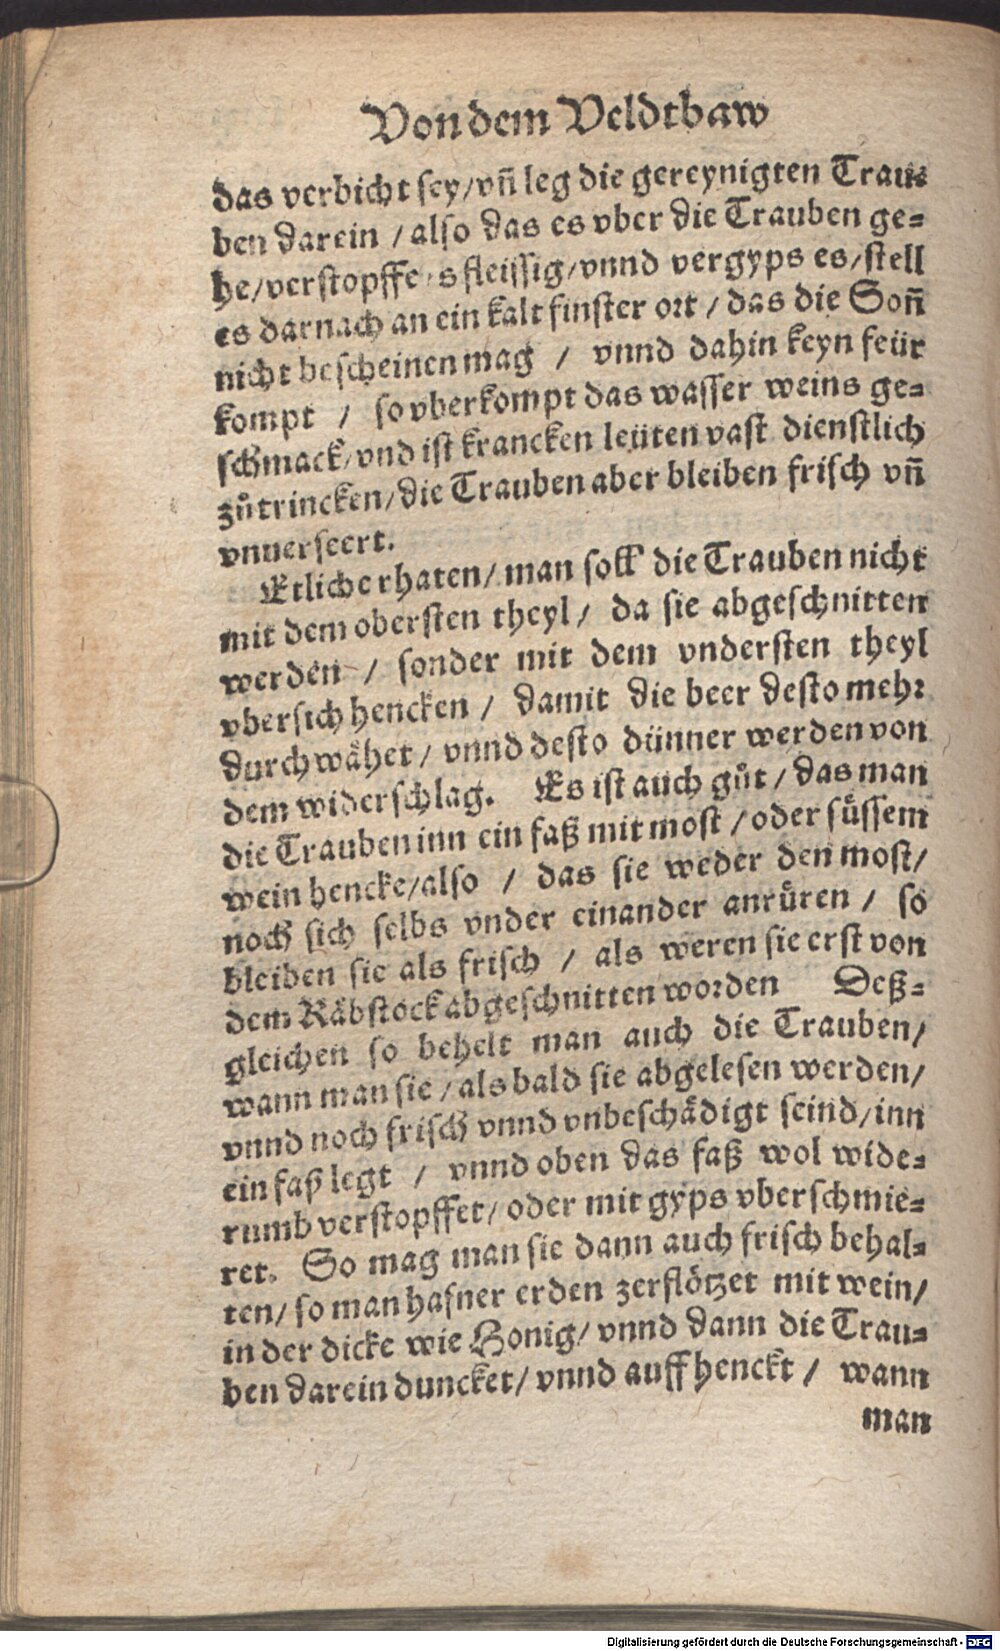 Von dem Veldtbaw
das verbicht sey/vñ leg die gereynigten Trau-
ben darein / also das es vber die Trauben ge-
he/verstopffe s fleissig/vnnd vergyps es/stell
es darnach an ein kalt finster ort / das die Soñ
nicht bescheinen mag / vnnd dahin keyn feür
kompt / so vberkompt das wasser weins ge-
schmack/vnd ist krancken leüten vast dienstlich
zůtrincken/die Trauben aber bleiben frisch vñ
vnuerseert.
Etliche rhaten/man soll die Trauben nicht
mit dem obersten theyl/ da sie abgeschnitten
werden / sonder mit dem vndersten theyl
vbersich hencken / damit die beer desto mehr
durchwähet/ vnnd desto dünner werden von
dem widerschlag. Es ist auch gůt/das man
die Trauben inn ein faß mit most/oder süssem
wein hencke/also / das sie weder den most/
noch sich selbs vnder einander anrüren / so
bleiben sie als frisch / als weren sie erst von
dem Räbstock abgeschnitten worden Deß-
gleichen so behelt man auch die Trauben/
wann man sie/als bald sie abgelesen werden/
vnnd noch frisch vnnd vnbeschädigt seind/inn
ein faß legt / vnnd oben das faß wol wide-
rumb verstopffet/oder mit gyps vberschmie-
ret. So mag man sie dann auch frisch behal-
ten/so man hafner erden zerflötzet mit wein/
in der dicke wie Honig/vnnd dann die Trau-
ben darein duncket/vnnd auff henckt / wann
man
Digitalisierung gefördert durch die Deutsche Forschungsgemeinschaft - DFG